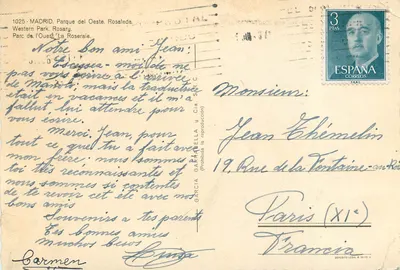 1025 - MADRID. Parque del Oeste. Rosaleda.
Western Park. Rosary.
Parc de l'Ouest. La Roseraie.
Notre bon ami Jean:
Excuse-moi de ne
pas vous écrire à l'arrivée
de mais la traductrice
était en vacances et il m'a
fallut lui attendre pour
vous écrire.
Merci, Jean, pour
tout ce que tu a fait avec
mon frère; nous sommes
toi très reconnaissantes et
nous sommes si contentes
de te revoir cet été avec nos
bons amis
Souvenirs a tes parents
Tes bonnes amies
muchos besos
Carmen
GARCIA GARRABELLA
(Prohibida la reproducción)
3
PTAS
ESPAÑA
CORREOS
Monsieur:
Jean Thémelin
19, Rue de la Fontaine-au-Roi
Paris (XIe)
Francia